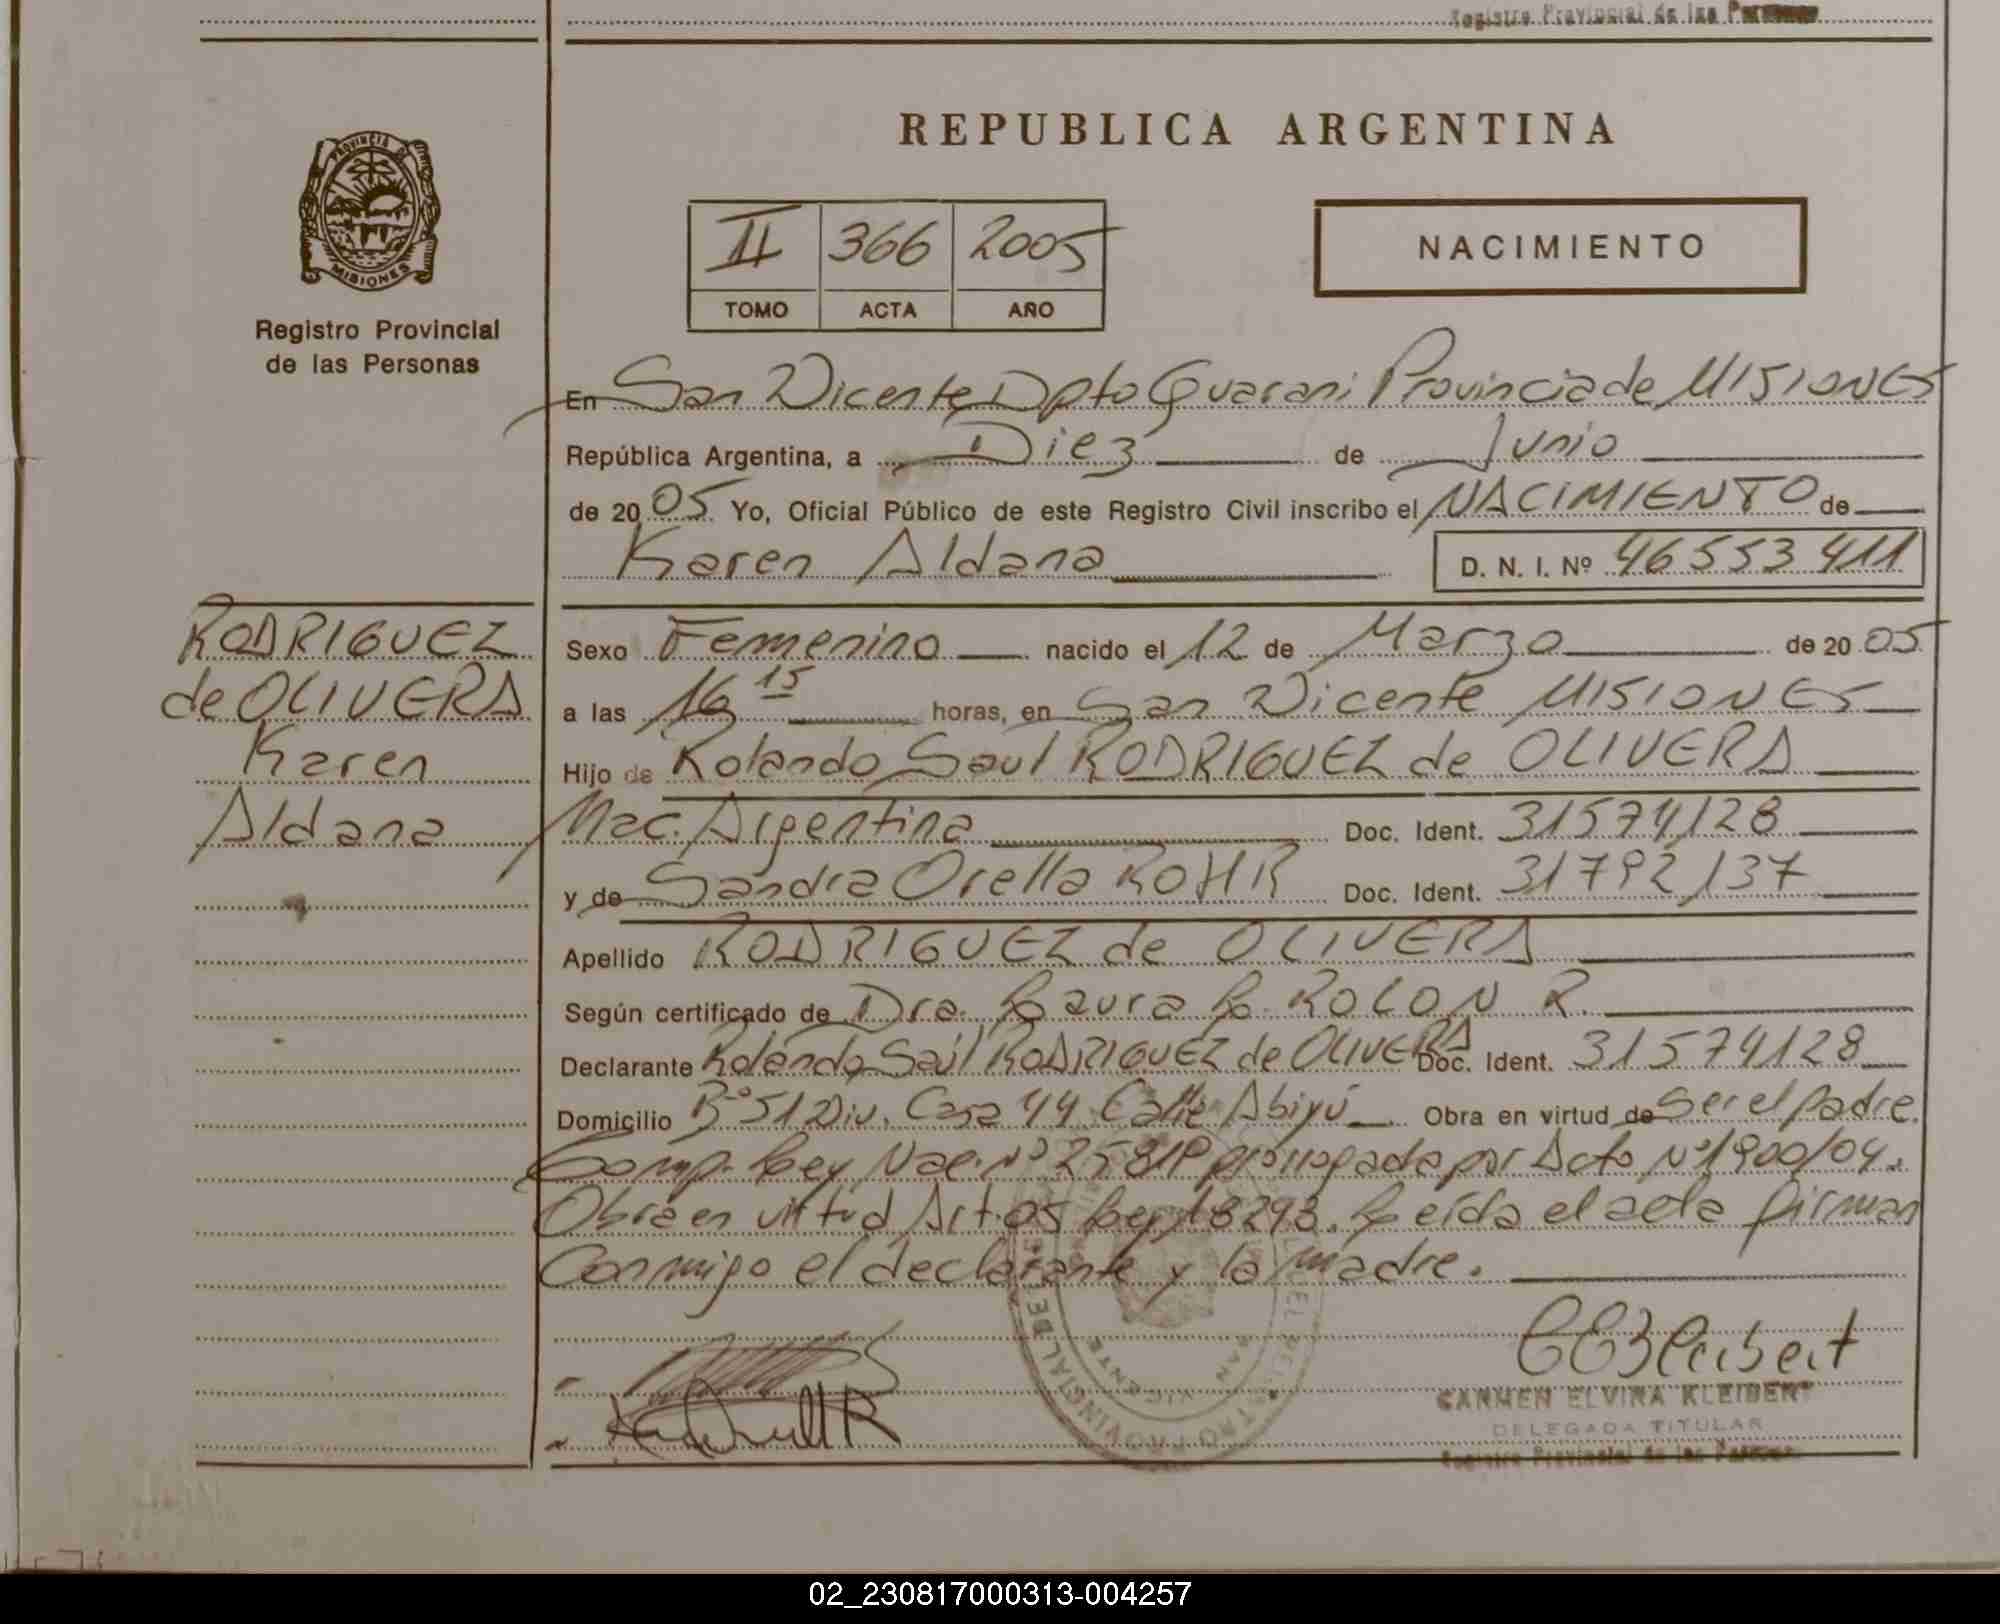 Registro Provincial de las Personas
REPUBLICA ARGENTINA
PROVINCIA DE
MISIONES
Registro Provincial
de las Personas
II 366 2005
TOMO ACTA AÑO
NACIMIENTO
En San Vicente Dpto Guarani Provincia de MISIONES
República Argentina, a Diez de Junio
de 2005 Yo, Oficial Público de este Registro Civil inscribo el NACIMIENTO de
Karen Aldana D. N. I. Nº 46553411
RODRIGUEZ
de OLIVERA
Karen
Aldana
Sexo Femenino nacido el 12 de Marzo de 2005
a las 16 15 horas, en San Vicente MISIONES
Hijo de Rolando Saul RODRIGUEZ de OLIVERA
Nac. Argentina Doc. Ident. 31574128
y de Sandra Orella ROHR Doc. Ident. 31792137
Apellido RODRIGUEZ de OLIVERA
Según certificado de Dra. Laura L. ROLON R.
Declarante Rolando Saúl RODRIGUEZ de OLIVERA Doc. Ident. 31574128
Domicilio Bº 51 Viv. Casa 44 Calle Abiyú Obra en virtud de Ser el padre.
Comp. Ley Nac. Nº 25819 prorrogada por Dcto Nº 1900/04.
Obra en virtud Art. 05 Ley 18293. Leída el acta firman
Conmigo el declarante y la madre.
CARMEN ELVIRA KLEIBERT
DELEGADA TITULAR
Registro Provincial de las Personas
02_230817000313-004257